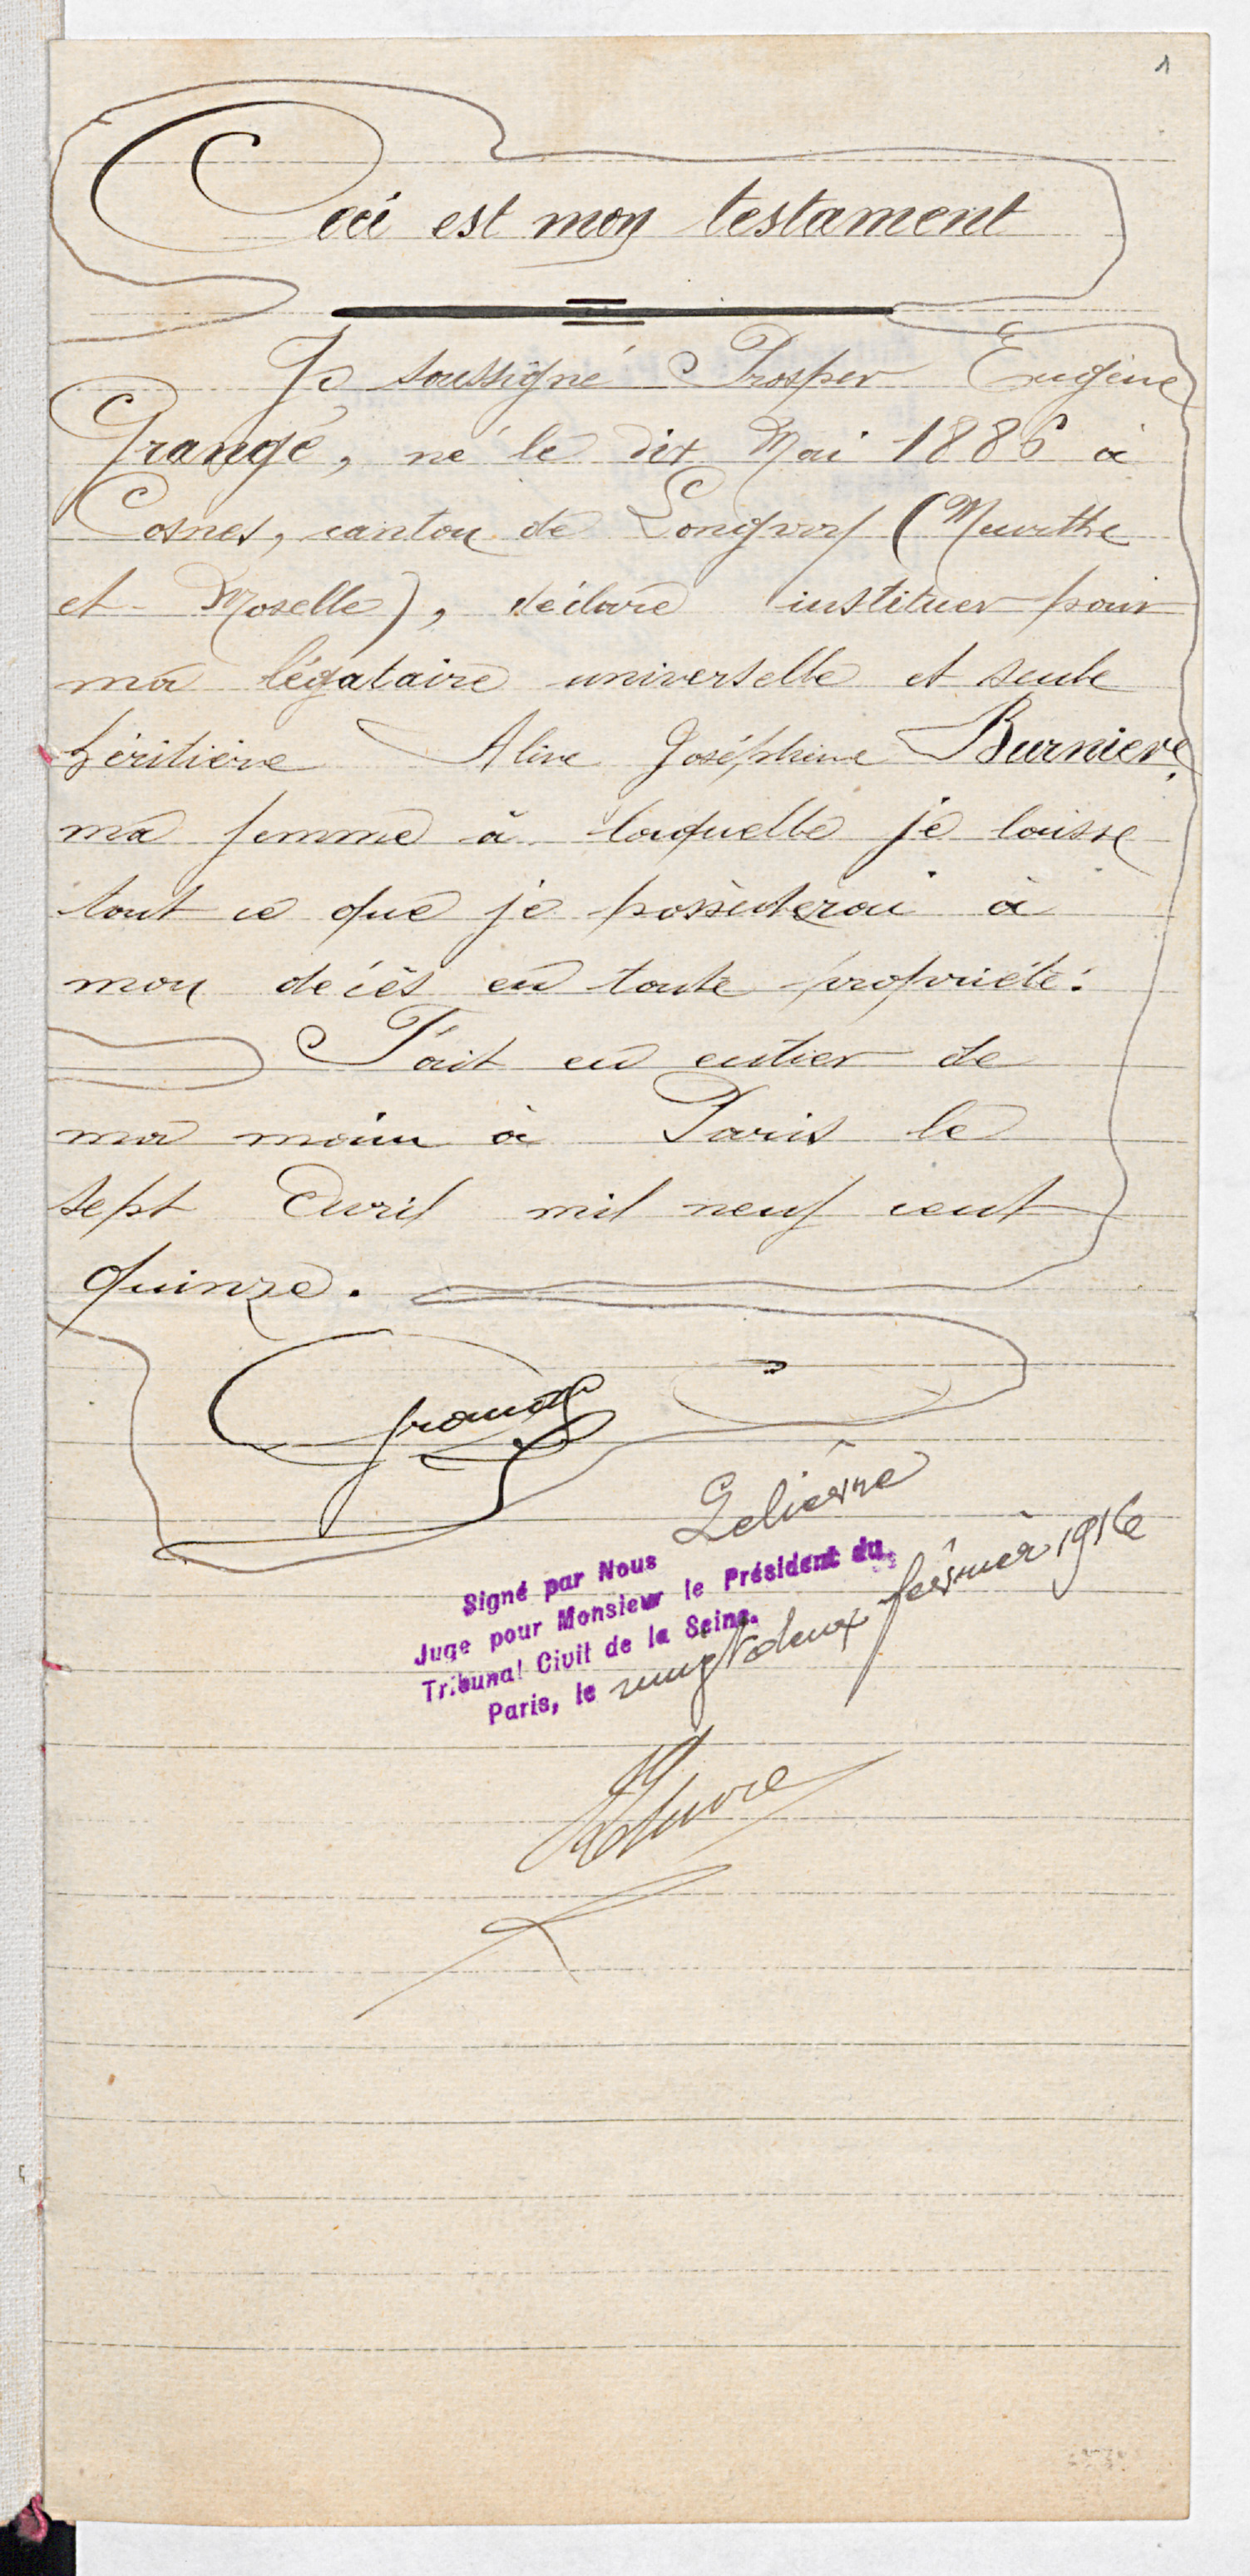 1
Ceci est mon testament
Je soussigné Prosper Eugène
Grangé, né le dix Mai 1886 à
Cosnes, canton de Longwy (Meurthe
et Moselle), déclare instituer pour
ma légataire universelle et seule
héritière Aline Joséphine Burnier,
ma femme à laquelle je laisse
tout ce que je possèderai à
mon décès en toute propriété.
Fait en entier de
ma main à Paris le
sept Avril mil neuf cent
quinze.
Grangé
Signé par Nous Lelièvre
Juge pour Monsieur le Président du
Tribunal Civil de la Seine.
Paris, le vingt deux février 1916